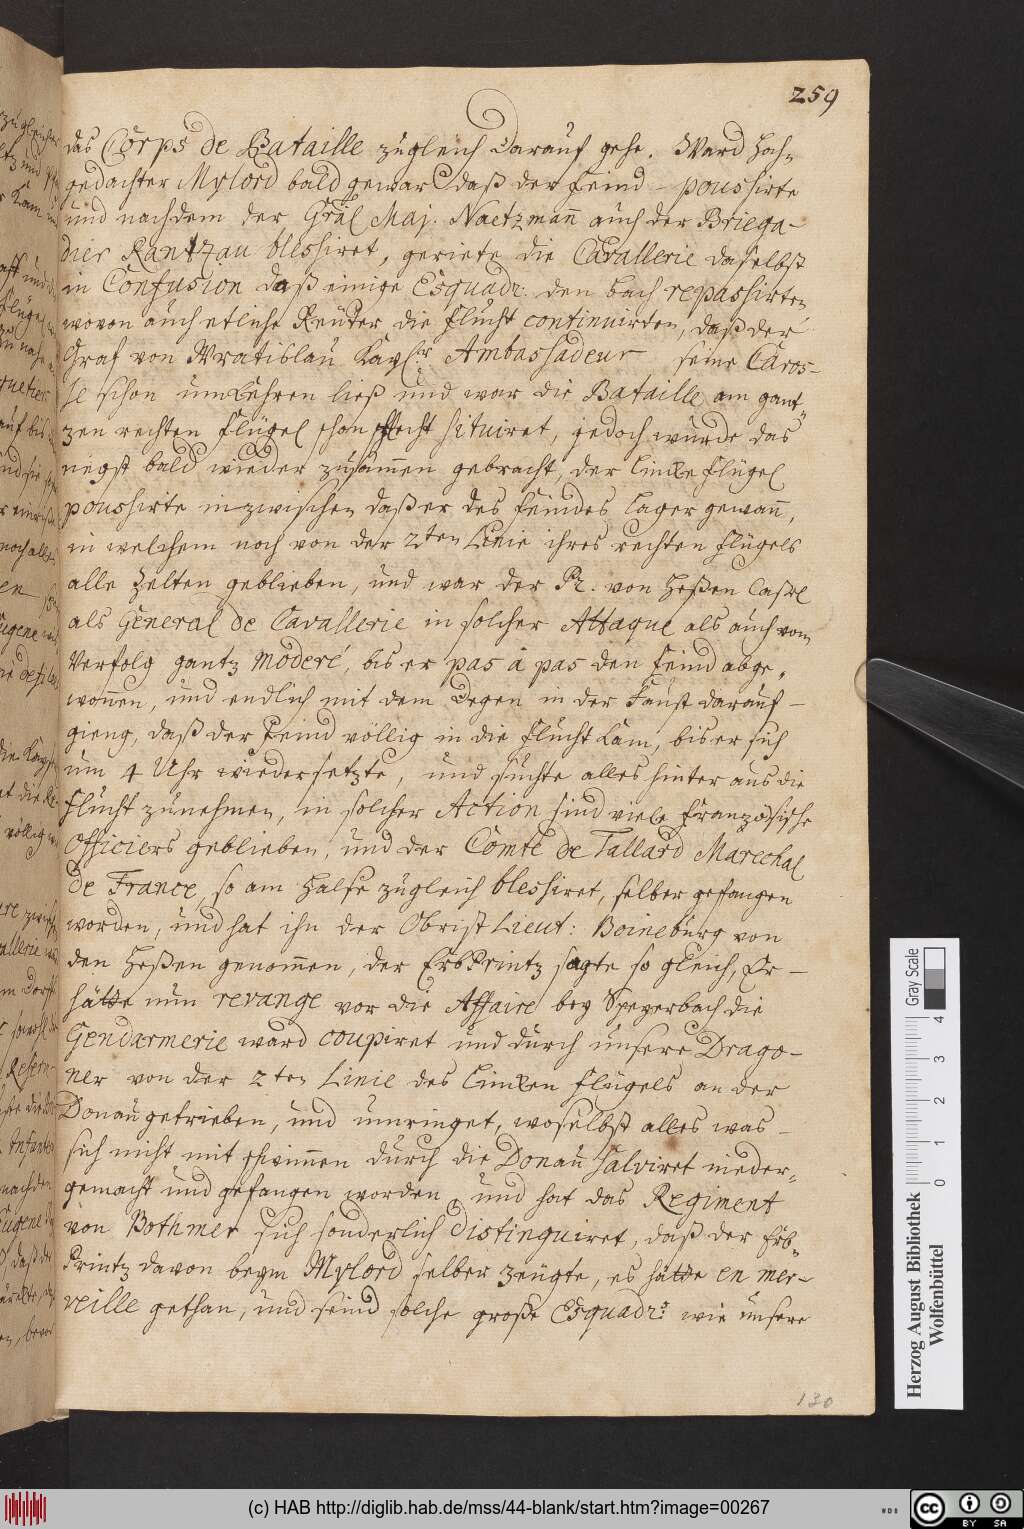 259
das Corps de Bataille zugleich darauf gehe. Ward hoch-
gedachter Mylord bald gewar daß der Feind - poussirte
und nachdem der Gral Maj. Naetzmañ auch der Briega-
dier Rantzau blessiret, geriete die Cavallerie daselbst
in Confusion daß einige Esquadr: den bach repassirten
wovon auch etliche Reüter die flucht continuirten, daß der
Graf von Wratislau Kaylr Ambassadeur seine Caros-
se schon umkehren ließ und war die Bataille am gant-
zen rechten flügel schon schlecht situiret, jedoch wurde das
negst bald wieder zusam̃en gebracht, der lincke flügel
poussirte inzwischen daß er des feindes lager gewañ,
in welchem noch von der 2ten Linie ihres rechten flügels
alle Zelten geblieben, und war der Pr. von Heßen Caßel
als General de Cavallerie in solcher Attaque als auch vom
Verfolg gantz moderé, bis er pas à pas den feind abge-
woñen, und endlich mit dem Degen in der Faust darauf -
gieng, daß der Feind völlig in die flucht kam, bis er sich
um 4 Uhr wiedersetzte, und suchte alles hinter aus die
flucht zunehmen, in solcher Action sind viele französische
Officiers geblieben, und der Comte de Tallard Marechal
de France, so am Halse zugleich blessiret, selber gefangen
worden, und hat ihn der Obrist Lieut: Boineburg von
den Heßen genom̃en, der ErbPrintz sagte so gleich, Er -
hätte nun revange vor die Affaire bey Speyerbach die
Gendarmerie ward coupiret und durch unsere Drago-
ner von der 2ten Linie des lincken flügels an der
Donau getrieben, und umringet, woselbst alles was -
sich nicht mit schwim̃en durch die Donau salviret nieder-
gemacht und gefangen worden, und hat das Regiment
von Bothmer sich sonderlich distinguiret, daß der Erb-
Printz davon beym Mylord selber zeügte, es hätte en mer-
veille gethan, und seind solche große Esquadrs: wie unsere
130
Herzog August Bibliothek
Wolfenbüttel
Gray Scale
0 1 2 3 4
(c) HAB http://diglib.hab.de/mss/44-blank/start.htm?image=00267
WDB
cc BY SA